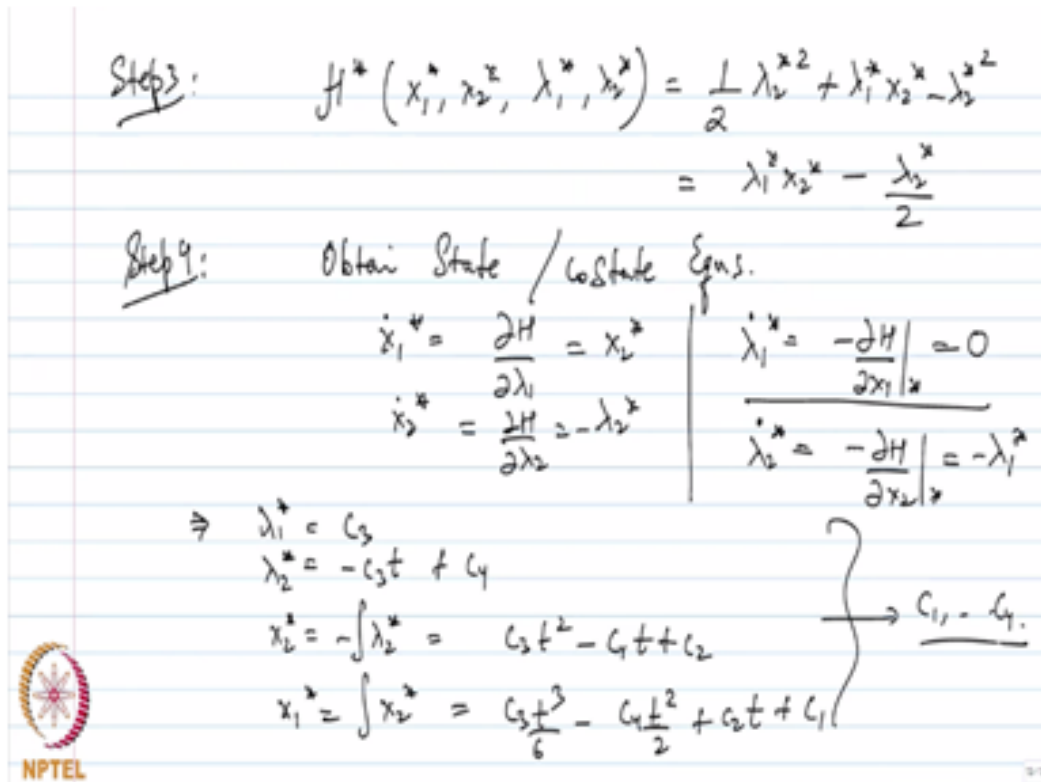 Step3: H* (x₁*, x₂*, λ₁*, λ₂*) = 1/2 λ₂*² + λ₁* x₂* - λ₂*²
= λ₁* x₂* - λ₂*/2
Step4: Obtain State / Costate Eqns.
ẋ₁* = ∂H/∂λ₁ = x₂* | λ̇₁* = -∂H/∂x₁|* = 0
ẋ₂* = ∂H/∂λ₂ = -λ₂* | λ̇₂* = -∂H/∂x₂|* = -λ₁*
⇒ λ₁* = C₃
λ₂* = -C₃t + C₄
x₂* = -∫λ₂* = C₃t² - C₄t + C₂ → C₁, - C₄.
x₁* = ∫x₂* = C₃t³/6 - C₄t²/2 + C₂t + C₁
NPTEL